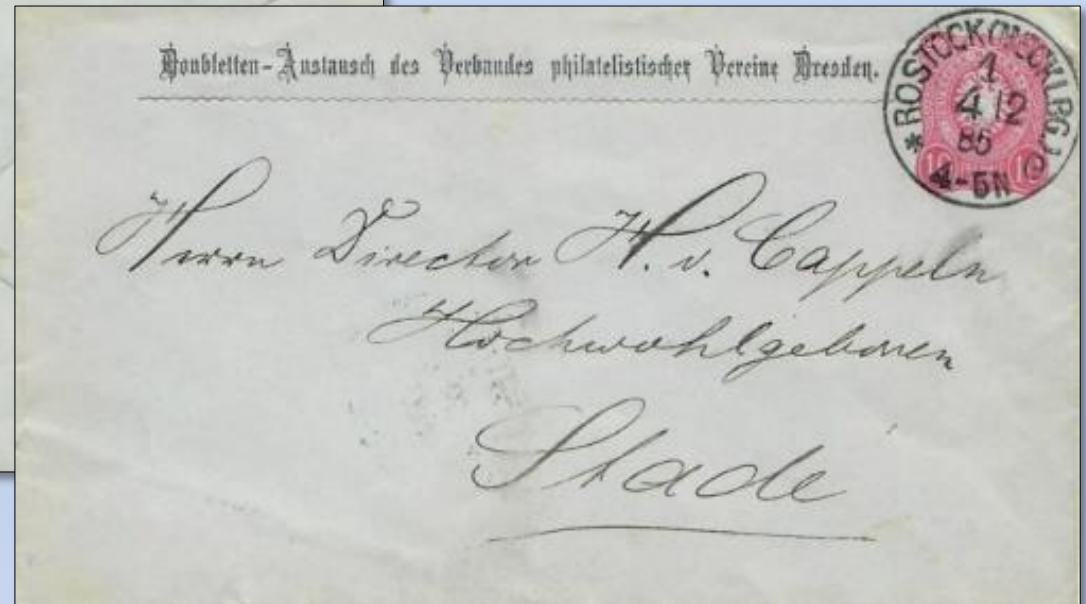 Doubletten-Austausch des Verbandes philatelistischer Vereine Dresden.
* ROSTOCK (MECKLBG.) C
1
4 12
85
4-5N
10 10
Herrn Director H. v. Cappeln
Hochwohlgeboren
Stade